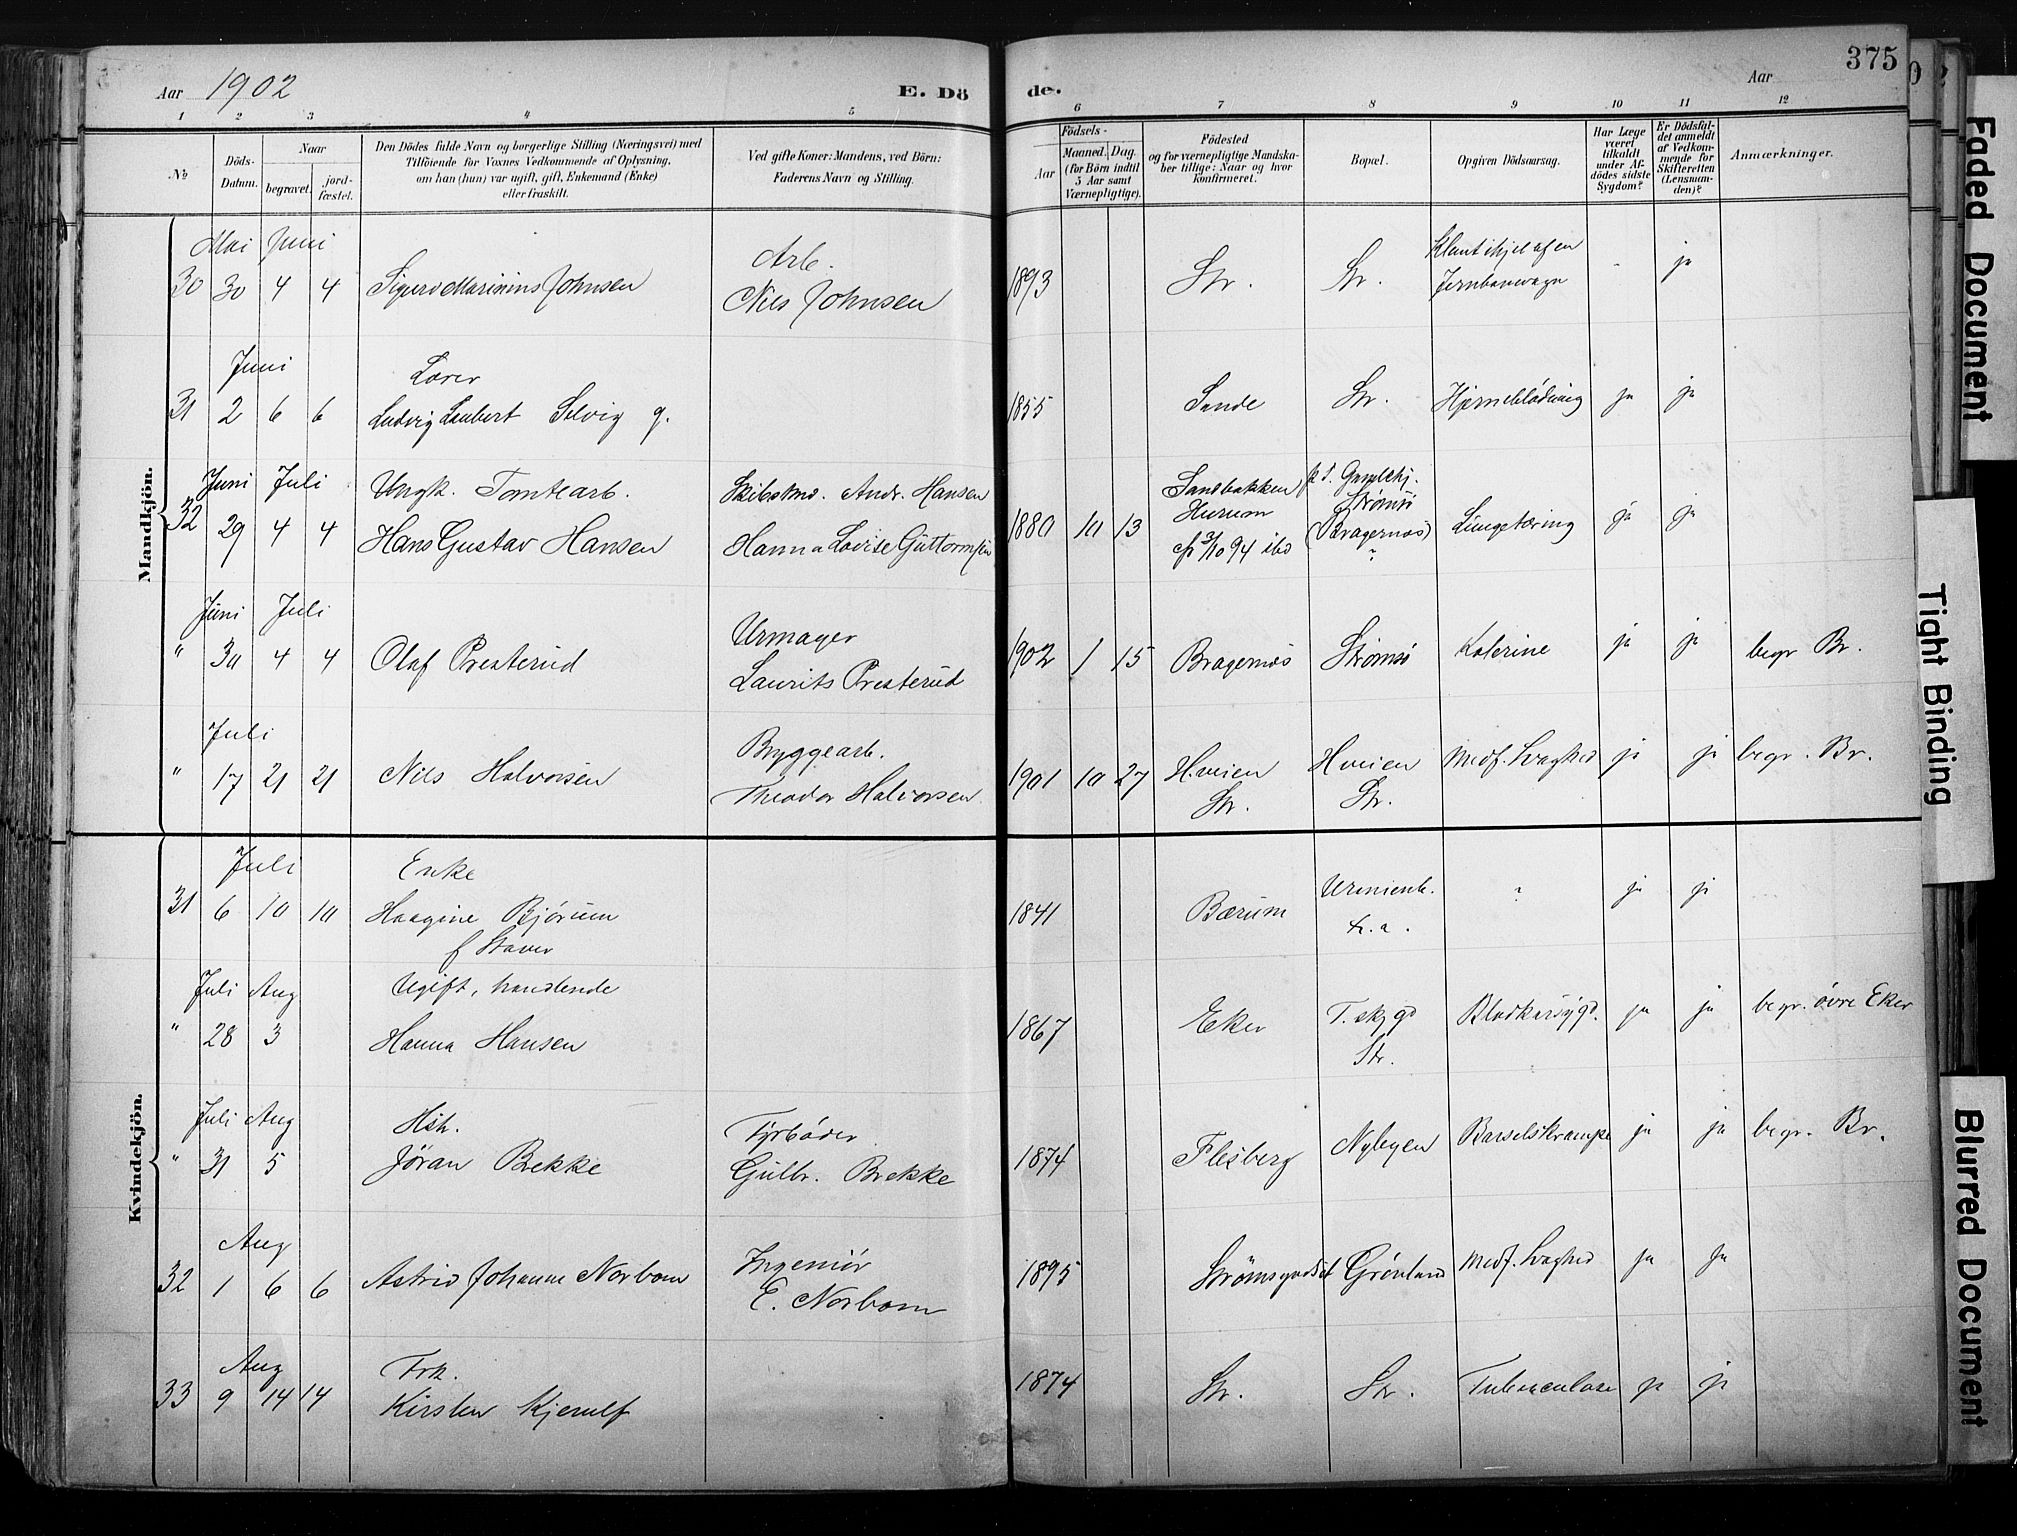 375
Aar 1902
E. Dö
de.
Aar
1 2 3 4 5 6 7 8 9 10 11 12
No
Döds-
Datum.
Naar
begravet.
jord-
fæstet.
Den Dödes fulde Navn og borgerlige Stilling (Næringsvei) med
Tilföiende for Voxnes Vedkommende af Oplysning,
om han (hun) var ugift, gift, Enkemand (Enke)
eller fraskilt.
Ved gifte Koner: Mandens, ved Börn:
Faderens Navn og Stilling.
Födsels-
Aar
Maaned. Dag.
(for Börn indtil
5 Aar samt
Værnepligtige).
Födested
og for værnepligtige Mandska-
ber tillige: Naar og hvor
konfirmeret.
Bopæl.
Opgiven Dödsaarsag.
Har Læge
været
tilkaldt
under Af-
dödes sidste
Sygdom?
Er Dödsfal-
det anmeldt
af Vedkom-
mende for
Skifteretten
(Lensman-
den)?
Anmærkninger.
Mandkjön.
Mai Juni
Arb.
30 30 4 4 Sigurd Marinius Johnsen Nils Johnsen 1893 Str. Str. Klemt ihjel af en
Jernbanevogn - ja
Juni
Lærer
31 2 6 6 Ludvig Laubert Selvig g. 1855 Sande Str. Hjerneblödning ja ja
Juni Juli Ungk. Tomtearb. Skibstmd. Andr. Hansen
32 29 4 4 Hans Gustav Hansen Hanna Lovise Guttormsen 1880 10 13
Sandbakken
Hurum
cfr 3/10 94 ibd
Strømsö
(Bragernæs)
Lungetæring ja ja
Juni Juli
Urmager
" 30 4 4 Olaf Presterud Laurits Presterud 1902 1 15 Bragernæs Strømsö Kolerine ja ja begr Br.
Juli
Bryggearb.
" 17 21 21 Nils Halvorsen Theodor Halvorsen 1901 10 27 H.veien
Str.
H veien
Str.
Medf. Svaghed ja ja begr. Br.
Kvindekjön.
Juli
Enke
31 6 10 10 Haagine Bjørum
f Staver
1841 Bærum
? ja ja
Juli Aug Ugift, handlende
" 28 3 Hanna Hansen 1867 Eker T. skj gd
Str.
Blodkarsygd. ja ja begr. övre Eker
Juli Aug Hst. Fyrböder
" 31 5 Jöran Brekke Gulbr. Brekke 1874 Flesberg Nybyen Barselskrampe ja ja begr. Br.
Aug
Ingeniör
32 1 6 6 Astrid Johanne Norbom E. Norbom 1895 Strømsgodset Grönland Medf. Svaghed ja ja
Aug Frk.
33 9 14 14 Kirsten Kjerulf 1874 Str. Str. Tuberculose ja ja
Faded Document
Tight Binding
Blurred Document